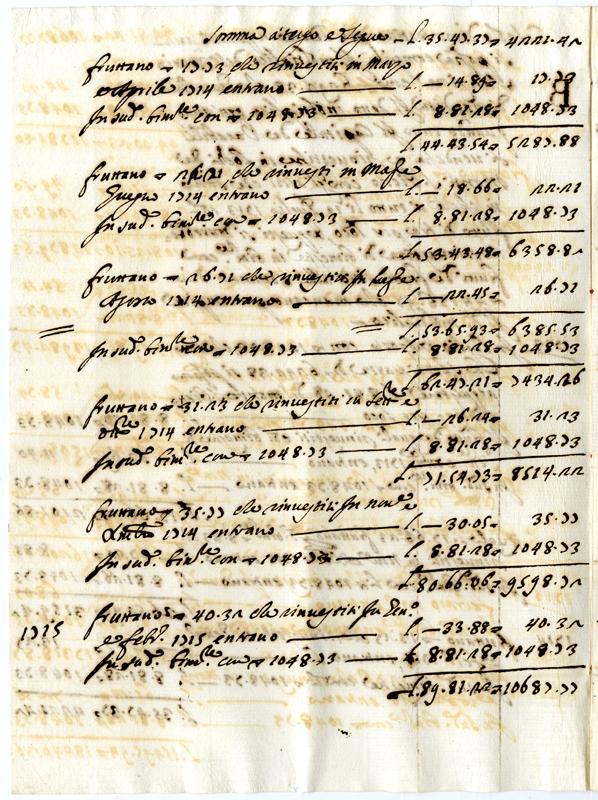 Somma a tergo e segue - L. 35.47.37 = 4221.42
fruttano = 17.73 che rinvestiti in Marzo
e Aprile 1714 entrano — L. — 14.89 = 17.73
In sud. bim.re con = 1048.73 — L. 8.81.28 = 1048.73
L. 44.43.54 = 5287.88
fruttano = 22.21 che rinvesti in Mag.e
Giugno 1714 entrano — L. — 18.66 = 22.21
In sud. bim.re con = 1048.73 — L. 8.81.28 = 1048.73
L. 53.43.48 = 6358.82
fruttano = 26.71 che rinvestiti in Lug.e
Agosto 1714 entrano — L. — 22.45 = 26.71
L. 53.65.93 = 6385.53
In sud. bim.re con = 1048.73 — L. 8.81.28 = 1048.73
L. 62.47.21 = 7434.26
fruttano = 31.23 che rinvestiti in Sett.e e
ott.e 1714 entrano — L. — 26.24 = 31.23
In sud. bim.re con = 1048.73 — L. 8.81.28 = 1048.73
L. 71.54.73 = 8514.22
fruttano = 35.77 che rinvestiti in nov.e e
Xmbre 1714 entrano — L. — 30.05 = 35.77
In sud. bim.re con = 1048.73 — L. 8.81.28 = 1048.73
L. 80.66.06 = 9598.72
fruttano = 40.32 che rinvestiti in Gen.o
1715 e febr. 1715 entrano — L. — 33.88 = 40.32
In sud. bim.re con = 1048.73 — L. 8.81.28 = 1048.73
L. 89.81.22 = 10687.77